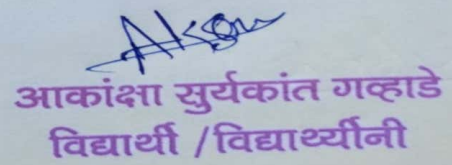 आकांक्षा सुर्यकांत गव्हाडे
विद्यार्थी /विद्यार्थ्यीनी